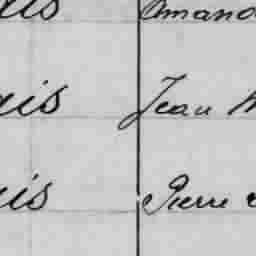 ais Amand
ais Jean
ais Pierre